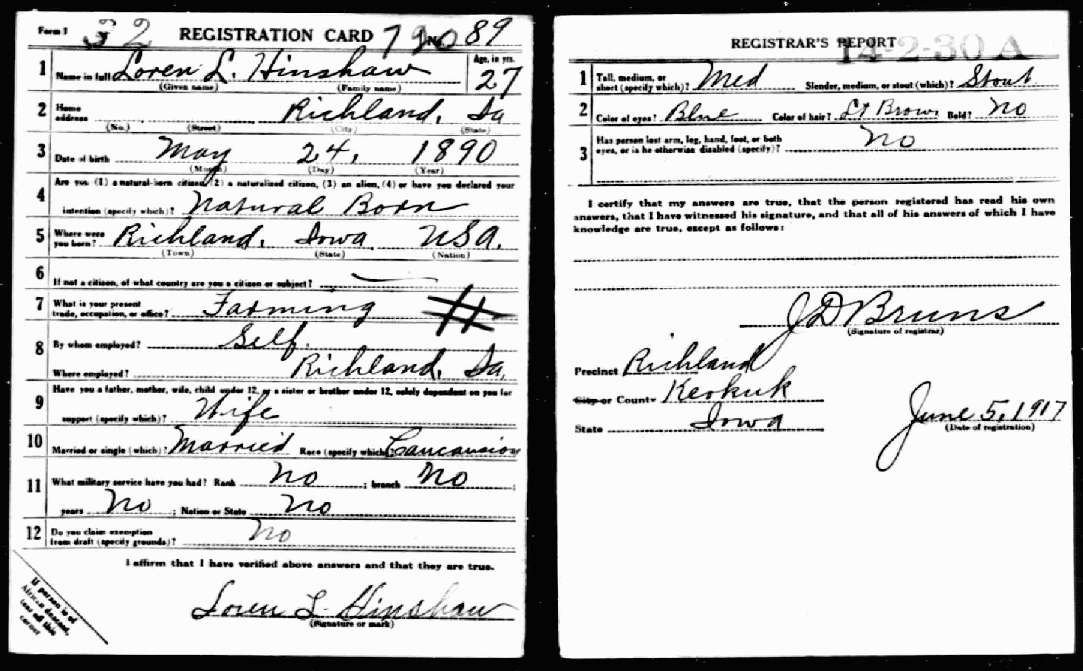 Form 1 32 REGISTRATION CARD No. 89
1 Name in full Loren L. Hinshaw Age, in yrs. 27
(Given name) (Family name)
2 Home address Richland, Ia
(No.) (Street) (City) (State)
3 Date of birth May 24, 1890
(Month) (Day) (Year)
4 Are you (1) a natural-born citizen, (2) a naturalized citizen, (3) an alien, (4) or have you declared your
intention (specify which)? Natural Born
5 Where were you born? Richland, Iowa USA.
(Town) (State) (Nation)
6 If not a citizen, of what country are you a citizen or subject?
7 What is your present trade, occupation, or office? Farming
8 By whom employed? Self.
Where employed? Richland, Ia.
9 Have you a father, mother, wife, child under 12, or a sister or brother under 12, solely dependent on you for
support (specify which)? Wife
10 Married or single (which)? Married Race (specify which)? Caucausion
11 What military service have you had? Rank No ; branch No ;
years No ; Nation or State No
12 Do you claim exemption from draft (specify grounds)? No
I affirm that I have verified above answers and that they are true.
Loren L Hinshaw
(Signature or mark)
If person is of
African descent,
tear off this
corner
REGISTRAR'S REPORT 14-2-30 A
1 Tall, medium, or short (specify which)? Med Slender, medium, or stout (which)? Stout
2 Color of eyes? Blue Color of hair? Lt Brown Bald? No
3 Has person lost arm, leg, hand, foot, or both
eyes, or is he otherwise disabled (specify)? No
I certify that my answers are true, that the person registered has read his own
answers, that I have witnessed his signature, and that all of his answers of which I have
knowledge are true, except as follows:
J D Bruns
(Signature of registrar)
Precinct Richland
City or County Keokuk
State Iowa
June 5, 1917
(Date of registration)